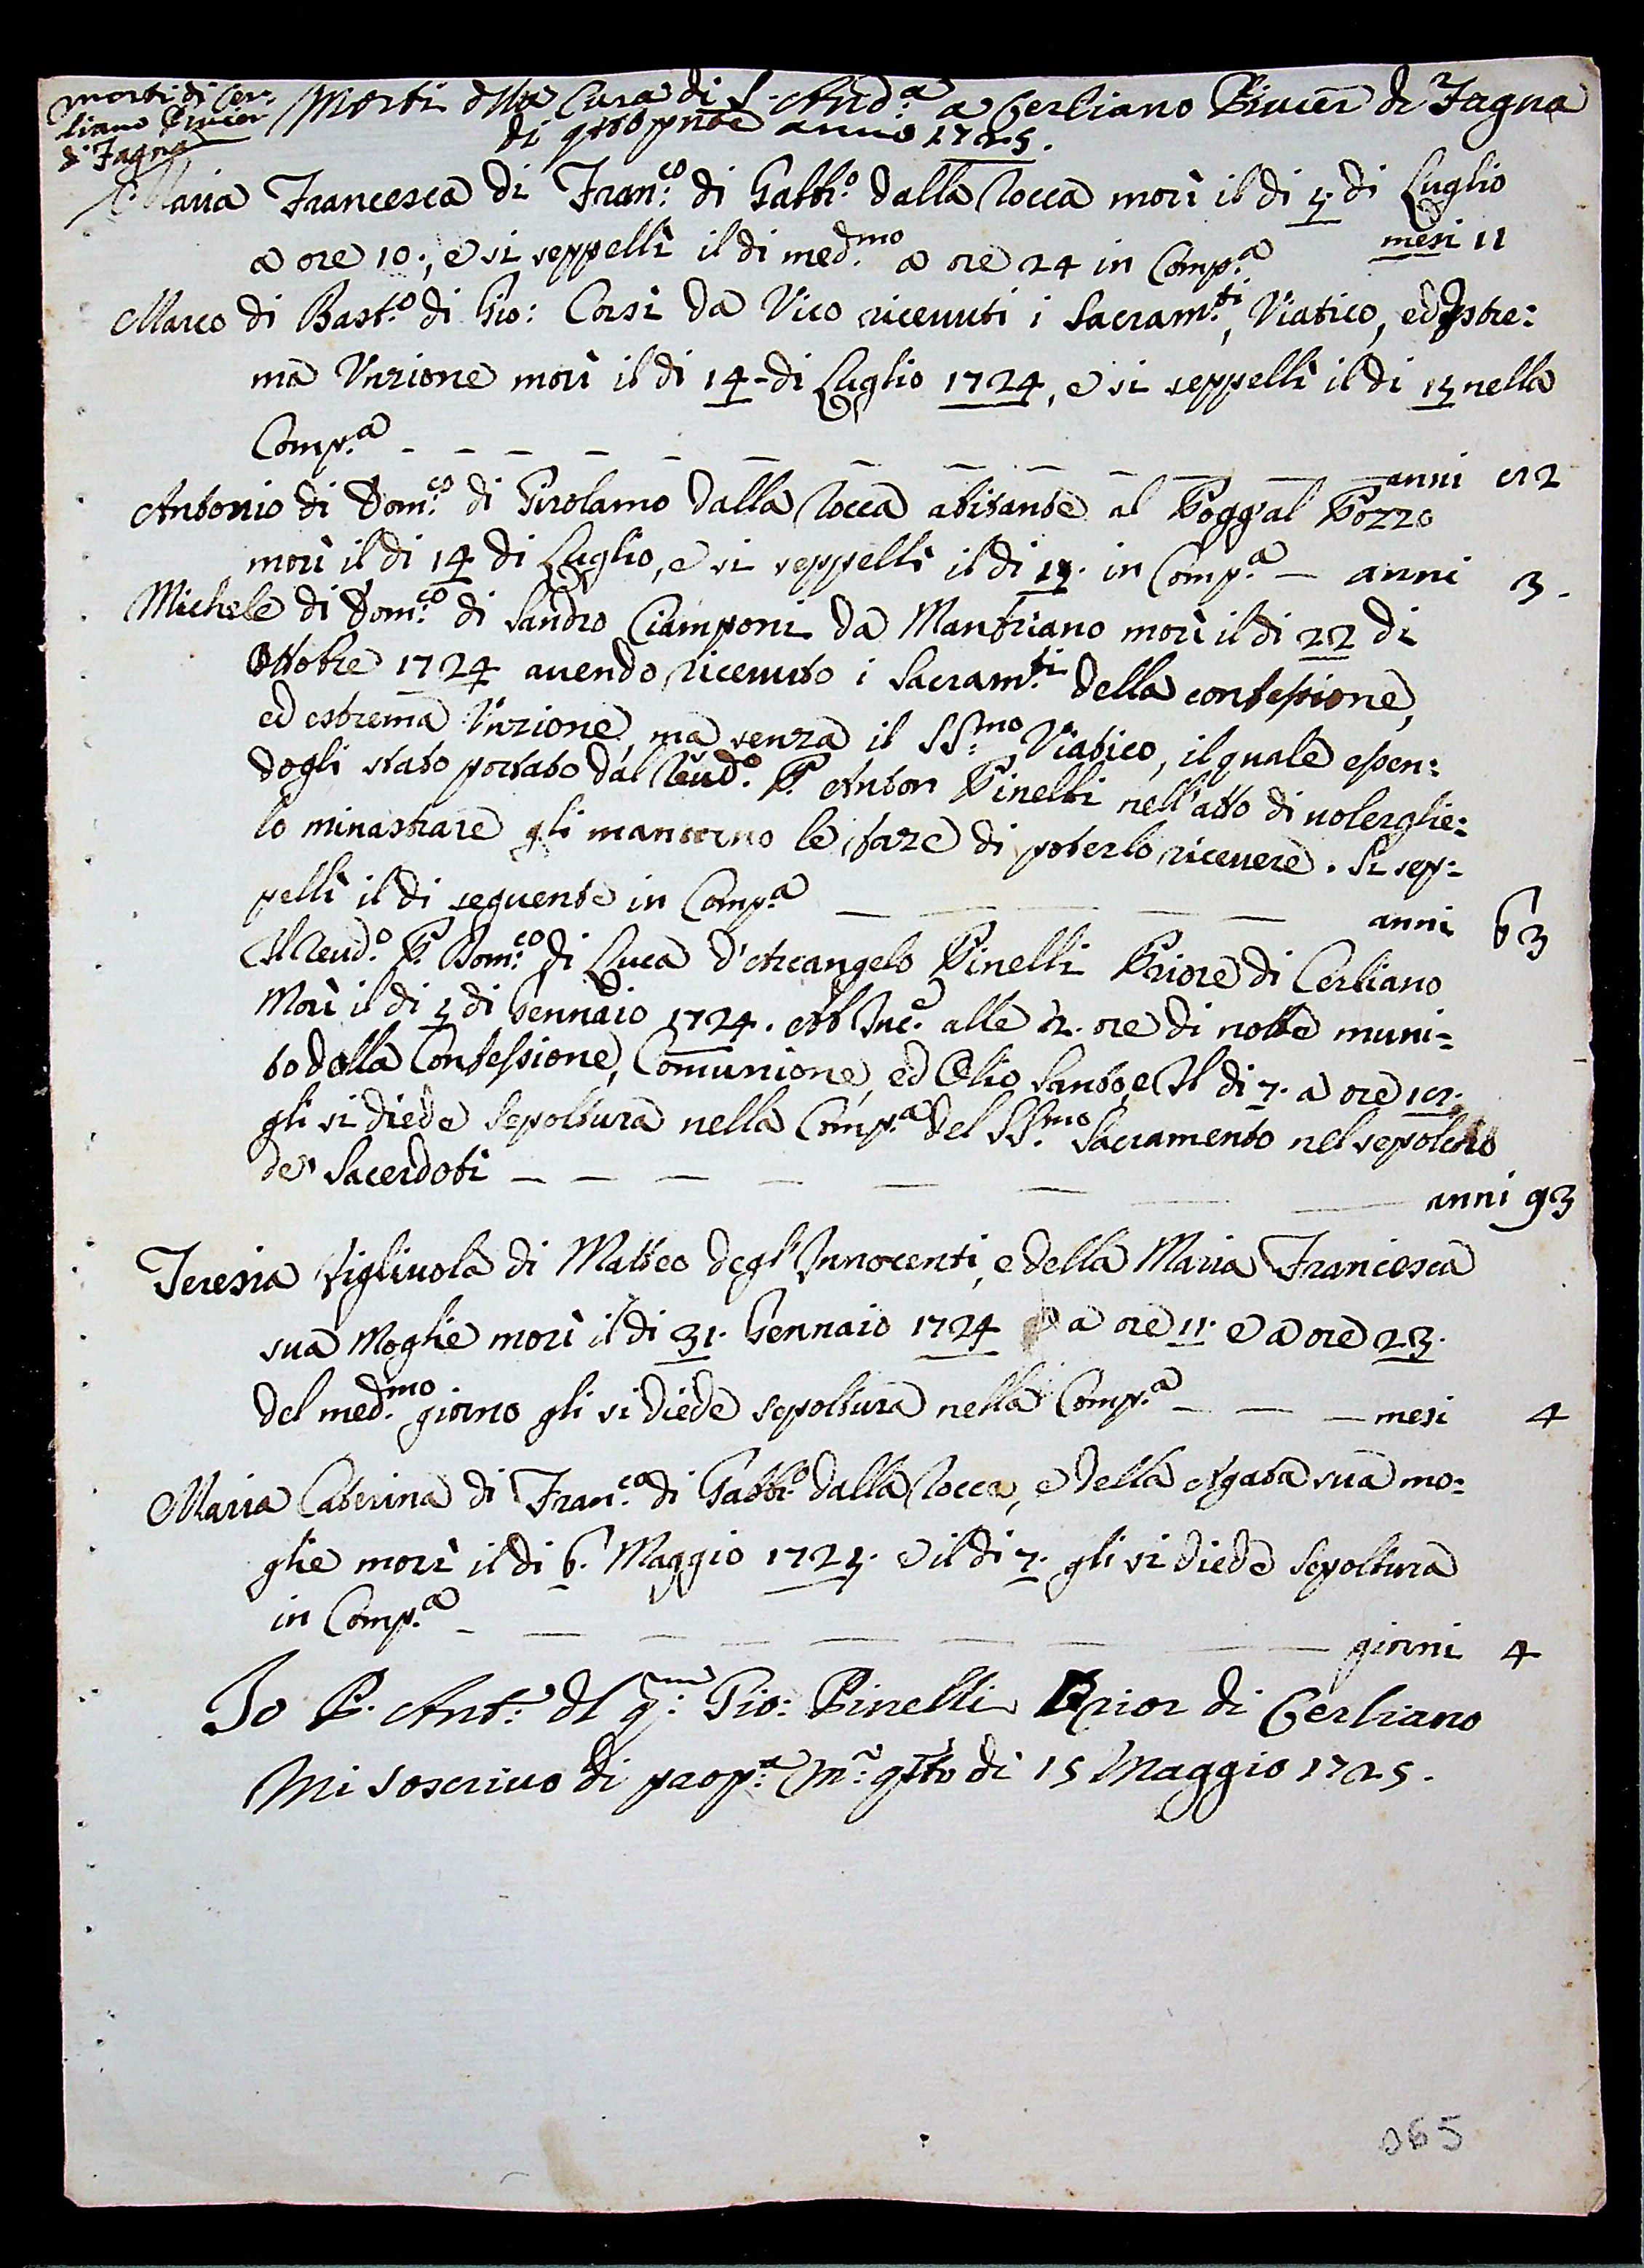 morti di Cer:
liano Piuier
di Fagna
Morti dlla Cura di S. And.a a Cerliano Piuier di Fagna
di qsto pnte anno 1725.
Maria Francesca di Fran.co di Gabb.o dalla Rocca morì il di 5 di Luglio
a ore 10., e si seppellì il di med.mo a ore 24 in Comp.a mesi 11
Marco di Bast.o di Gio: Corsi da Vico riceuuti i Sacram.ti, Viatico, ed Estre:
ma Unzione morì il di 14 di Luglio 1724, e si seppellì il di 15 nella
Comp.a - - - - - - - - - - - anni 52
Antonio di Dom.co di Girolamo dalla Rocca abitante al Pogg'al Pozzo
morì il di 14 di Luglio, e si seppellì il di 15. in Comp.a - anni 3.
Michele di Dom.co di Sandro Ciamponi da Mantriano morì il di 22 di
Ottobre 1724 auendo riceuuto i Sacram.ti della confessione,
ed estrema Unzione, ma senza il SS.mo Viatico, il quale essen:
dogli stato portato dal Reud.o P. Anton Pinelli nell'atto di uolerglie:
lo minastrare gli mancorno le forze di poterlo riceuere. Si sep:
pellì il di seguente in Comp.a - - - - - anni 63
Il Reud.o P. Dom.co di Luca d'Arcangelo Pinelli Priore di Cerliano
Morì il di 5 di Gennaio 1724. ab Inc.e alle 2. ore di notte muni:
to della Confessione, Comunione, ed Olio Santo, e Il di 7. a ore
gli si diede Sepoltura nella Comp.a del SS.mo Sacramento nel sepolcro
de' Sacerdoti - - - - - - - - anni 93
Teresia figliuola di Matteo degl'Innocenti, e della Maria Francesca
sua Moglie morì il di 31. Gennaio 1724 a ore 11. e a ore 23.
del med.mo giorno gli si diede sepoltura nella Comp.a - - - mesi 4
Maria Caterina di Fran.co di Gabb.o dalla Rocca, e della Agata sua mo:
glie morì il di 6. Maggio 1725. e il di 7. gli si diede Sepoltura
in Comp.a - - - - - - - - - giorni 4
Io P. Ant.o dl q.m Gio: Pinelli Prior di Cerliano
Mi soscriuo di prop.a M.o qsto di 15 Maggio 1725.
065